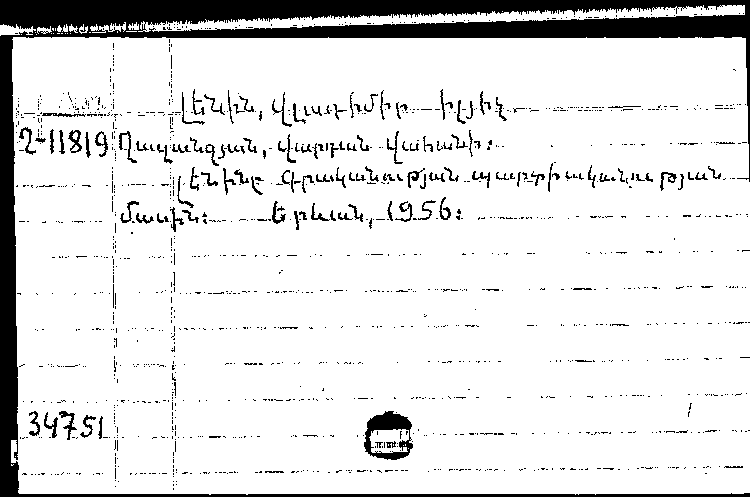 Լենին, Վլադիմիր Իլյիչ
2-11819 Ղազանչյան, Վարդան Վահանի:
Լենինը գրականության պարտիականության
մասին: Երևան, 1956:
34751